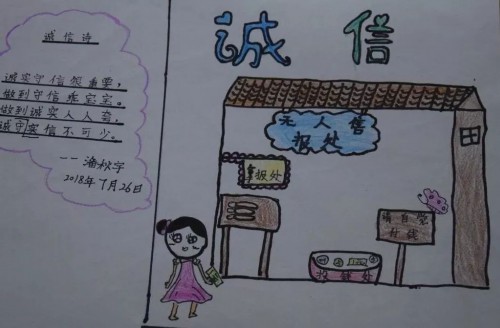 诚信诗
诚实守信很重要,
做到守信乖宝宝。
做到诚实人人
诚守实信不可少。
2018年7月26日
诚信
无人售
报处
拿报处
请自觉
付钱
投钱处